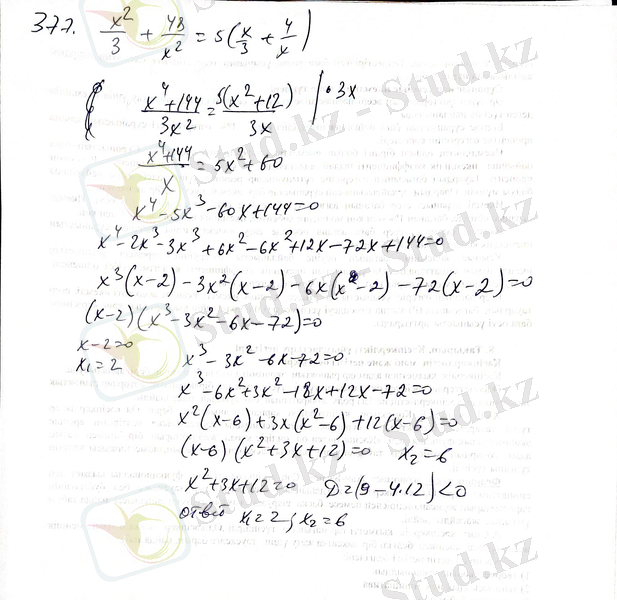 377. x²/3 + 48/x² = 5(x/3 + 4/x)
(x⁴+144)/3x² = 5(x²+12)/3x | · 3x
(x⁴+144)/x = 5x²+60
x⁴-5x³-60x+144=0
x⁴-2x³-3x³+6x²-6x²+12x-72x+144=0
x³(x-2)-3x²(x-2)-6x(x-2)-72(x-2)=0
(x-2)(x³-3x²-6x-72)=0
x-2=0
x₁=2
x³-3x²-6x-72=0
x³-6x²+3x²-18x+12x-72=0
x²(x-6)+3x(x²-6)+12(x-6)=0
(x-6)(x²+3x+12)=0 x₂=6
x²+3x+12=0 D=(9-4·12)<0
ответ x₁=2; x₂=6
Stud.kz - Stud.kz
Stud.kz - Stud.kz
Stud.kz - Stud.kz
Stud.kz